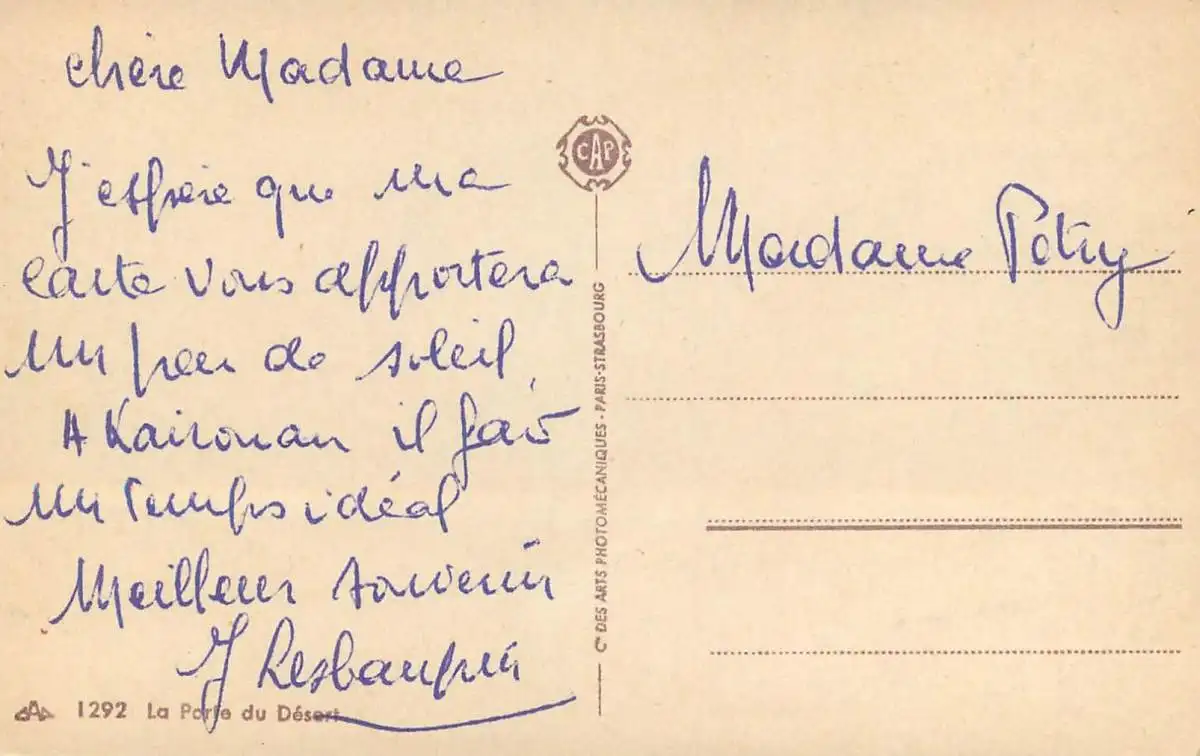 chère Madame
J'espère que ma
carte vous apportera
un peu de soleil,
A Kairouan il fait
un temps idéal
Meilleur souvenir
J
1292 La Porte du Désert
CAP
Cie DES ARTS PHOTOMÉCANIQUES - PARIS-STRASBOURG
Madame Petry